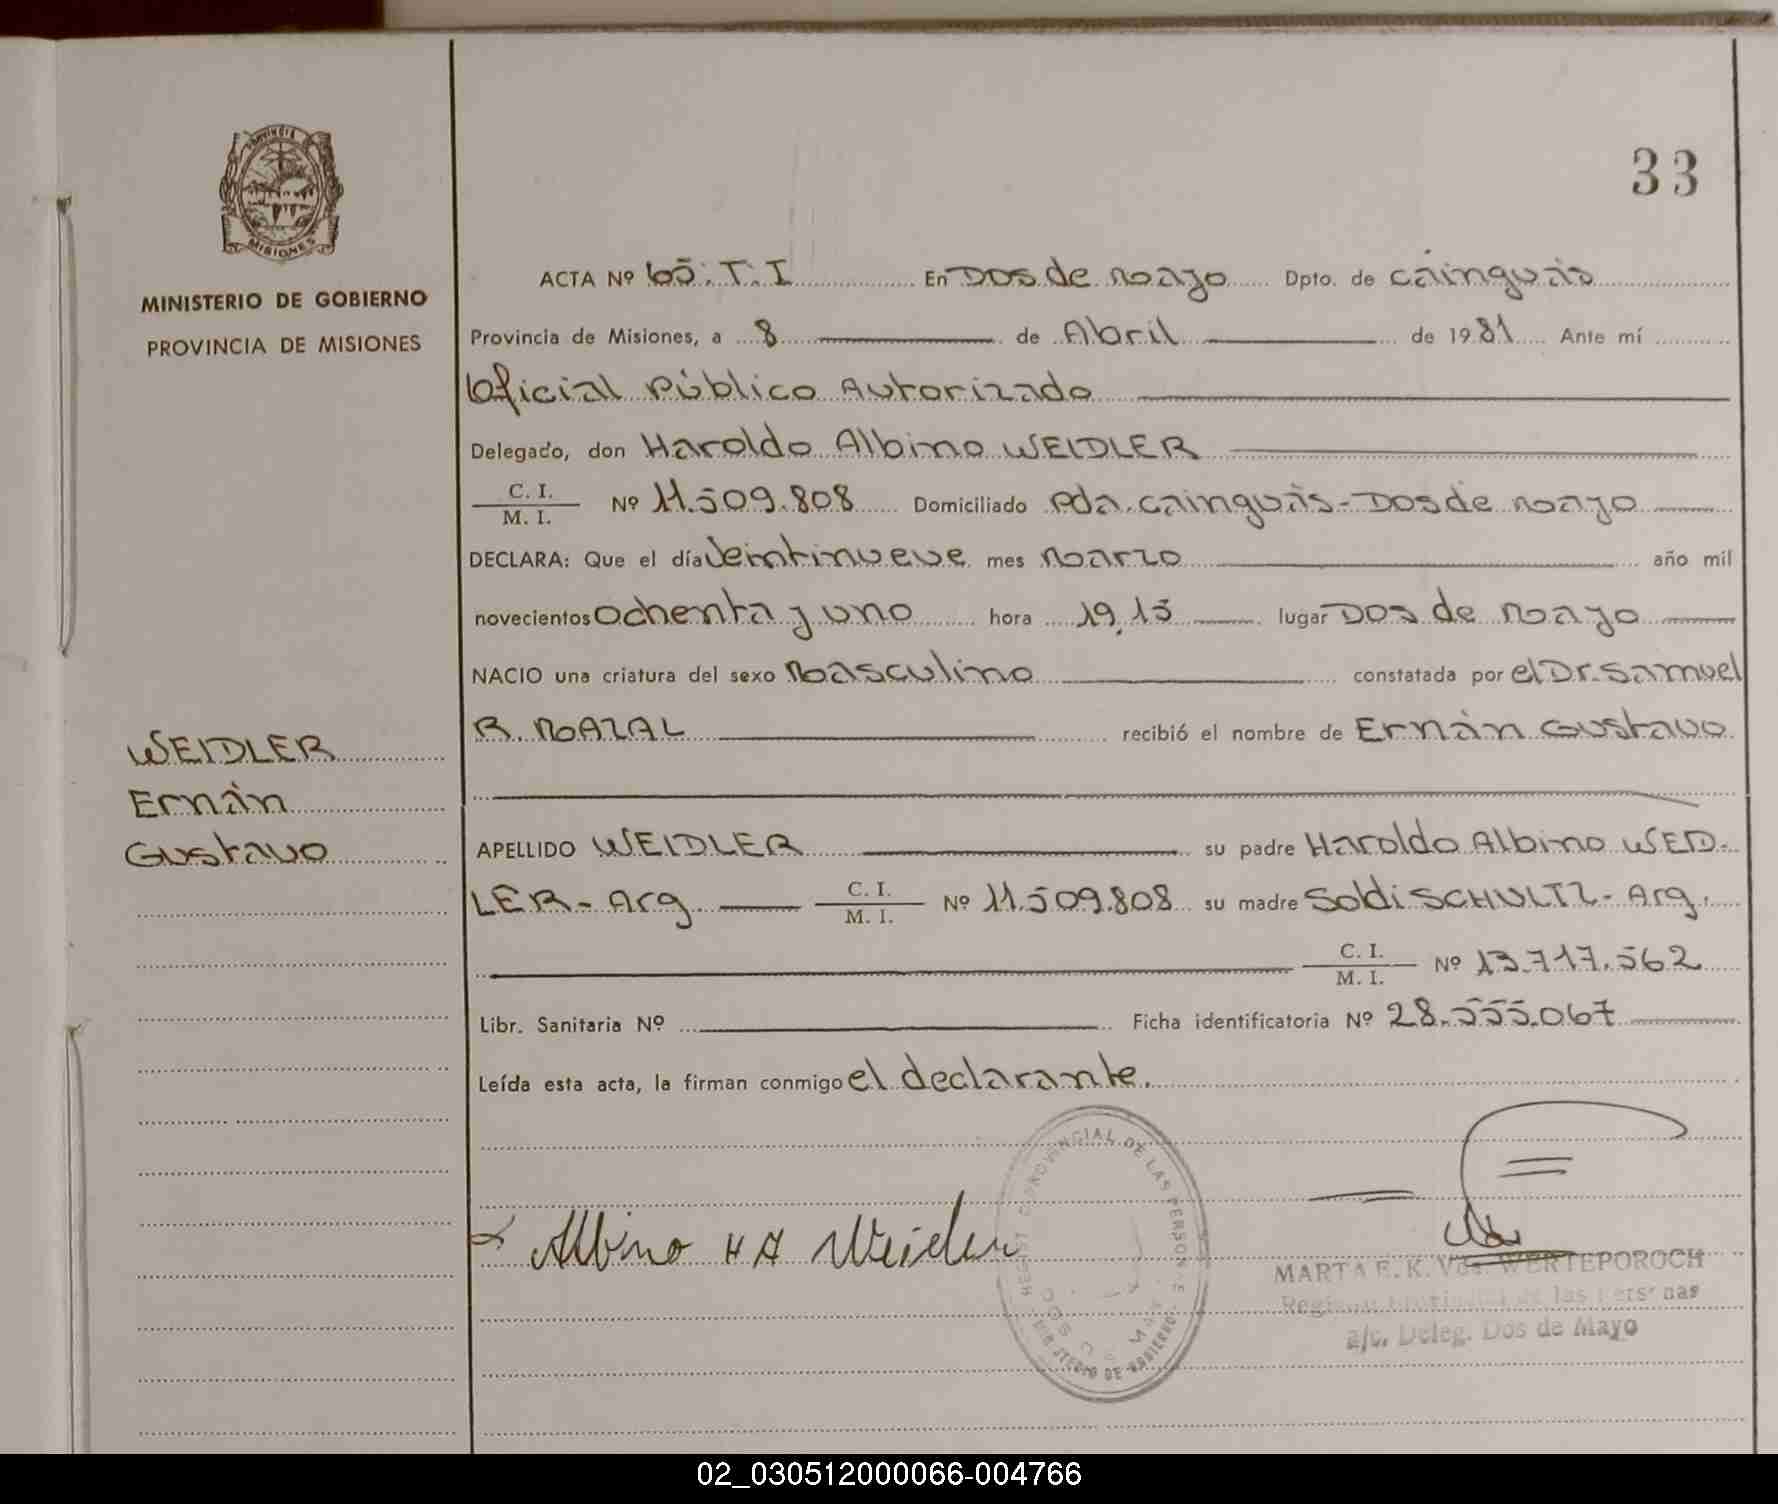 PROVINCIA
MISIONES
MINISTERIO DE GOBIERNO
PROVINCIA DE MISIONES
WEIDLER
Ernán
Gustavo
33
ACTA Nº 65. T. I En Dos de Mayo Dpto. de Cainguás
Provincia de Misiones, a 8 de Abril de 1981 Ante mí
Oficial Público Autorizado
Delegado, don Haroldo Albino WEIDLER
C. I.
M. I. Nº 11.509.808 Domiciliado Pda. Cainguás-Dos de Mayo
DECLARA: Que el día Veintinueve mes Marzo año mil
novecientos Ochenta y uno hora 19,15 lugar Dos de Mayo
NACIO una criatura del sexo Masculino constatada por el Dr. Samuel
R. MAZAL recibió el nombre de Ernán Gustavo
APELLIDO WEIDLER su padre Haroldo Albino WEID-
LER- Arg C. I.
M. I. Nº 11.509.808 su madre Soldi SCHULTZ- Arg.
C. I.
M. I. Nº 13.717.562
Libr. Sanitaria Nº Ficha identificatoria Nº 28.555.067
Leída esta acta, la firman conmigo el declarante.
PROVINCIAL DE LAS PERSONAS
DE GOBIERNO
Albino H A Weidler
MARTA E. K. Vda. WERTEPOROCH
de las Personas
a/c. Deleg. Dos de Mayo
02_030512000066-004766